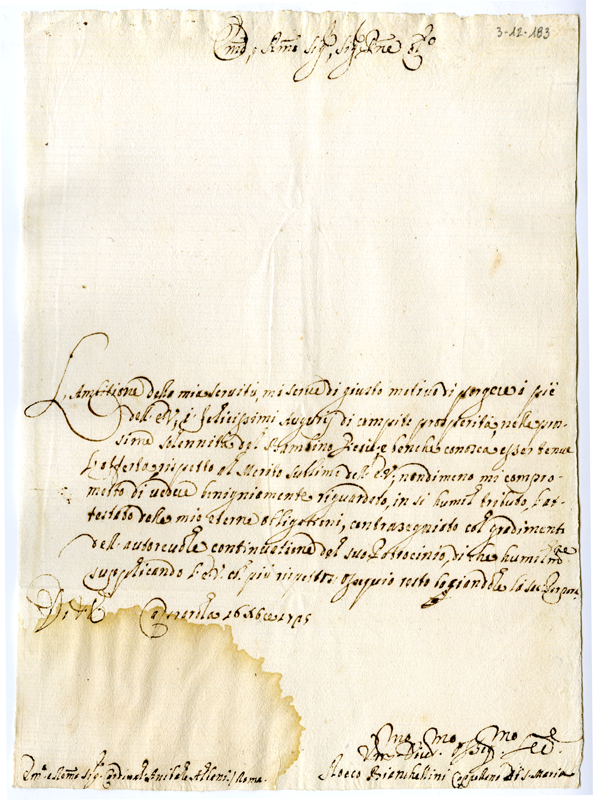 3-12-183
Em.o e Rmo Sig.r Sig.r Pne
L'Ambitione della mia servitù, mi serve di giusto motivo di porgere a piè
dell'E.V. i felicissimi Augurij di compite prosperità, nelle pros-
sime solennità del Bambino Giesù, e benche conosca esser tenue
l'offerta, rispetto al Merito sublime dell'E.V. nondimeno mi compro-
metto di vedere benignamente riguardato, in sì humil tributo, l'at-
testato delle mie eterne obligationi, contrasegniato col gradimento
dell'autorevole continuatione del suo Patrocinio, di che humilme
supplicando l'E.V. col più rispettoso ossequio resto baciandole la Sac. Porpora
Di V.E. 16 Xbre 1715
Vmo Divmo Ossmo Sre
Em.o e Rmo Sig.r Cardinale Anibale Albani / Roma
Rocco Bianchellini Cappellano di S. Maria